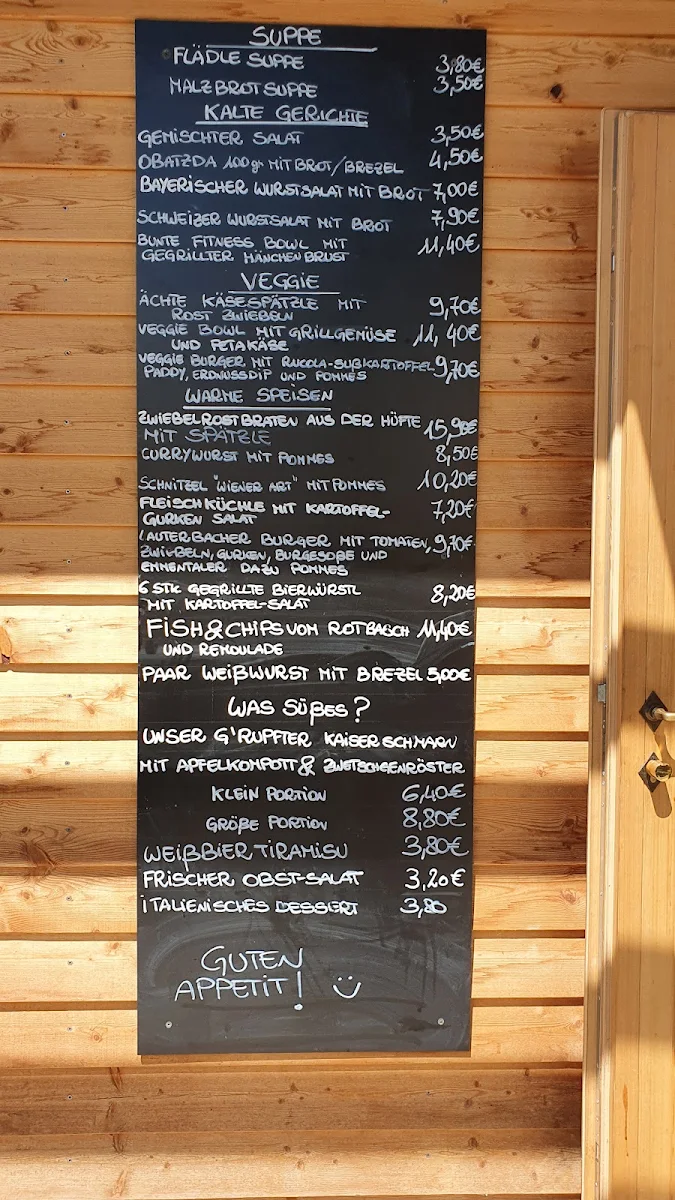 SUPPE
FLÄDLE SUPPE 3,80€
MALZBROTSUPPE 3,50€
KALTE GERICHTE
GEMISCHTER SALAT 3,50€
OBATZDA 100gr MIT BROT/BREZEL 4,50€
BAYERISCHER WURSTSALAT MIT BROT 7,00€
SCHWEIZER WURSTSALAT MIT BROT 7,90€
BUNTE FITNESS BOWL MIT 11,40€
GEGRILLTER HÄNCHENBRUST
VEGGIE
ÄCHTE KÄSESPÄTZLE MIT 9,70€
ROST ZWIEBELN
VEGGIE BOWL MIT GRILLGEMÜSE 11,40€
UND FETAKÄSE
VEGGIE BURGER MIT RUCOLA-SUßKARTOFFEL 9,70€
PADDY, ERDNUSSDIP UND POMMES
WARME SPEISEN
ZWIEBELROSTBRATEN AUS DER HÜFTE 15,90€
MIT SPÄTZLE
CURRYWURST MIT POMMES 8,50€
SCHNITZEL "WIENER ART" MIT POMMES 10,20€
FLEISCHKÜCHLE MIT KARTOFFEL- 7,20€
GURKEN SALAT
LAUTERBACHER BURGER MIT TOMATEN, 9,70€
ZWIEBELN, GURKEN, BURGESOßE UND
EMMENTALER DAZU POMMES
6 STK GEGRILLTE BIERWÜRSTL 8,20€
MIT KARTOFFEL-SALAT
FISH & CHIPS VOM ROTBASCH 11,40€
UND REMOULADE
PAAR WEIßWURST MIT BREZEL 5,00€
WAS SÜßES?
UNSER G'RUPFTER KAISERSCHMARN
MIT APFELKOMPOTT & ZWETSCHGENRÖSTER
KLEIN PORTION 6,40€
GRÖßE PORTION 8,80€
WEIßBIER TIRAMISU 3,80€
FRISCHER OBST-SALAT 3,20€
iTALIENISCHES DESSERT 3,80
GUTEN
APPETIT!